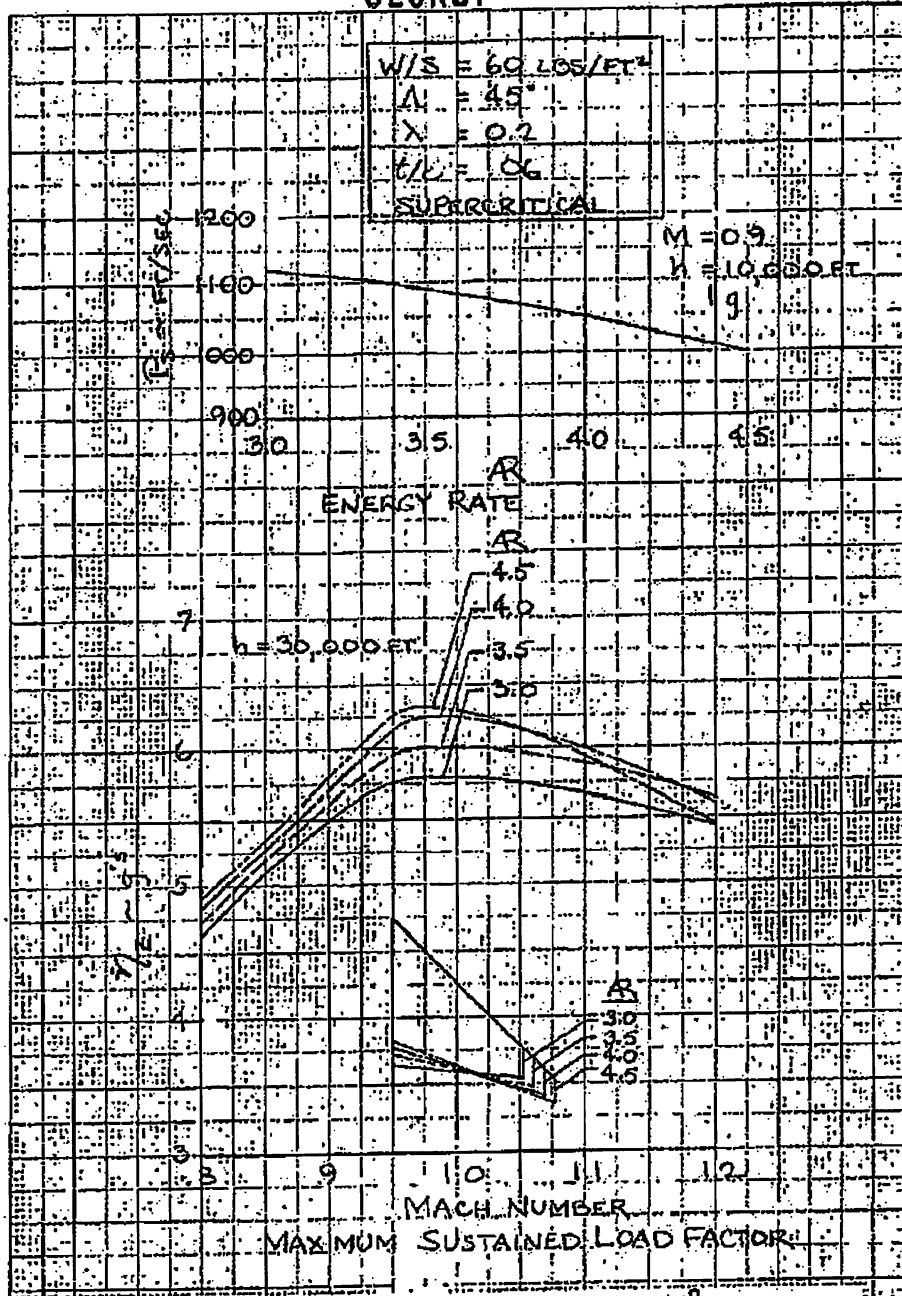 W/S = 60 LBS/FT²
Λ = 45°
λ = 0.2
t/c = .06
SUPERCRITICAL
M = 0.9
h = 10,000 FT
1 g
1200
1100
1000
900
Ps ~ FT/SEC
3.0 3.5 4.0 4.5
AR
ENERGY RATE
AR
4.5
4.0
3.5
3.0
h = 30,000 FT
7
6
5
4
3
ηE ~ g's
AR
3.0
3.5
4.0
4.5
.8 .9 1.0 1.1 1.2
MACH NUMBER
MAXIMUM SUSTAINED LOAD FACTOR